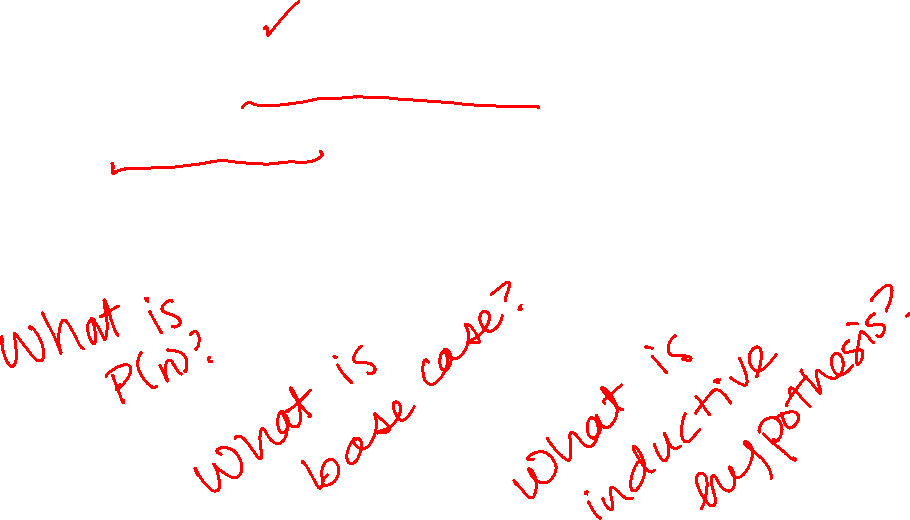 What is
P(n)?
What is
base case?
What is
inductive
hypothesis?